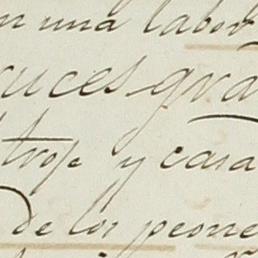 en una labor
cruces gra
troje y casa
de los peones